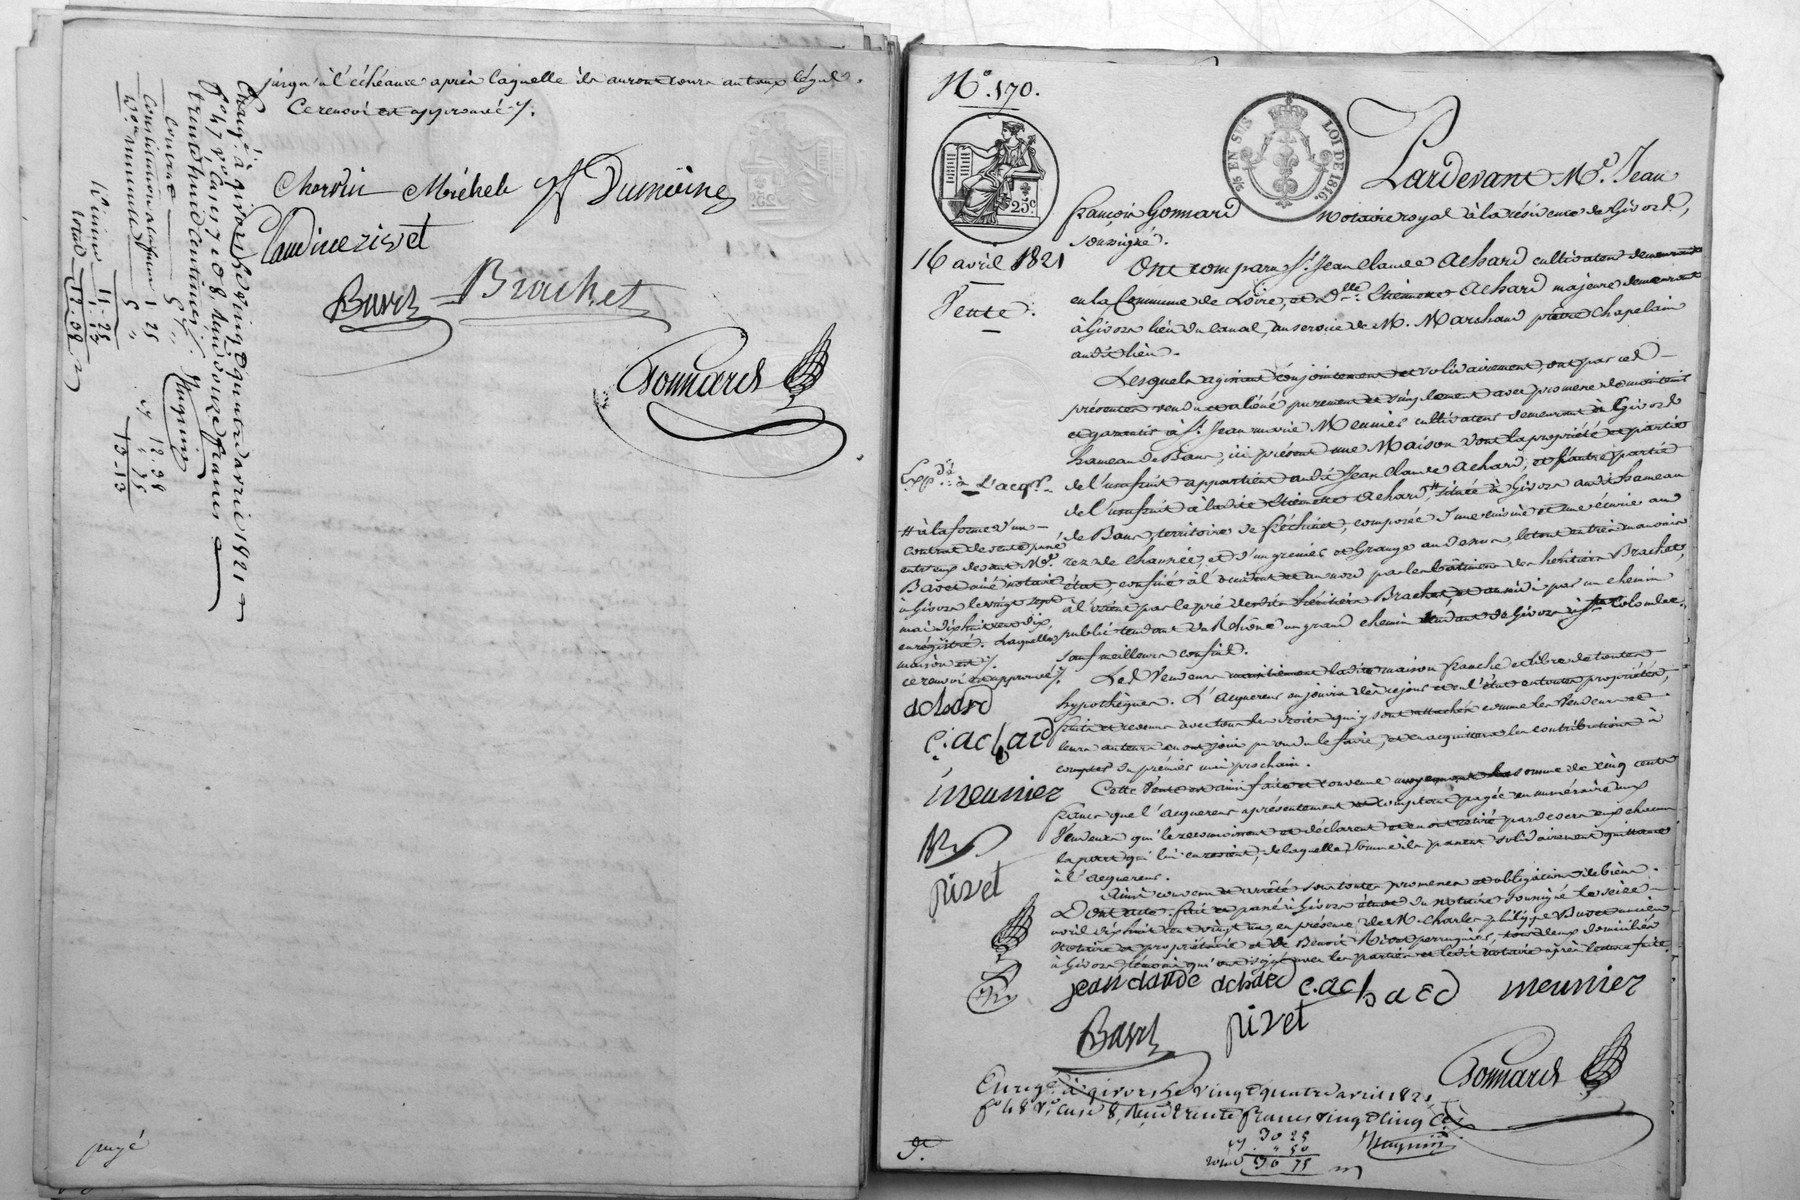 jusqu'à l'échéance après laquelle ils auront cours au taux légal.
Ce renvoi est approuvé ./.
Chervin Michel Dumaine
Claudine rivet
Bavet Brachet
Gonnard
Enregé. à givors le vingt quatre avril 1821
fo. 47 vo. cases 7 et 8, Reçu douze francs
trente huit centimes ./.
Magnin
payé
No. 170.
25c
5/c EN SUS LOI DE 1816.
Pardevant Me. Jean
françois Gonnard notaire royal à la résidence de Givors,
soussigné.
16 avril 1821
Vente.
Ont comparu Sr. Jean Claude Achard cultivateur demeurant
en la Commune de Loire, et Dlle. Etiennette Achard majeure demeurant
à Givors lieu du Canal, au service de M. Marchand prêtre Chapelain
audit lieu.
Lesquels agissant conjointement et solidairement, ont par ces
présentes vendu et aliéné purement et simplement avec promesse de maintenir
et garantir à Sr. Jean marie Meunier cultivateur demeurant à Givors
hameau de Bans, ici présent une Maison dont la propriété et partie
de l'usufruit appartient audit Jean Claude Achard, et l'autre partie
de l'usufruit à ladite Etiennette Achard, # située à Givors audit hameau
de Bans, territoire de composée d'une cuisine et une écurie au
rez de chaussée, et d'un grenier et Grange au dessus, le tout en très mauvais
état; confiné à l'occident et au nord par les bâtimens des héritiers Brachet,
à l'orient par le pré desdits héritiers Brachet, et au midi par un chemin
public tendant du Rhône au grand chemin tendant de Givors à Ste. Colombe,
sauf meilleurs confins.
Expd. à L'acqr.
# à la forme d'un
contrat de vente passé
entr'eux devant Me.
Bavet ainé notaire
à Givors le vingt sept
mai dix huit cent dix,
enregistré. Laquelle
maison est ./.
ce renvoi est approuvé ./.
achard
e. achard
meunier
rivet
Les Vendeurs maintiennent ladite maison franche et libre de toutes
hypothèques. L'acquereur en jouira dès ce jour en l'état en toutes propriétés,
fruits et revenus avec tous les droits qui y sont attachés comme les Vendeurs et
leurs auteurs en ont joui pu ou du le faire, et en acquittera les contributions à
compter du premier mai prochain.
Cette Vente est ainsi faite et convenue moyennant la somme de cinq cents
francs que l'acquereur a présentement et comptant payée en numéraire aux
Vendeurs qui le reconnoissent et déclarent et en ont retiré pardevers eux chacun
la part qui lui en revient, de laquelle somme ils passent solidairement quittance
à l'acquereur.
Ainsi convenu et arrêté sous toutes promesses et obligations de biens.
Dont acte. fait et passé à Givors étude du notaire soussigné le seize
avril dix huit cent vingt un, en présence de M. Charles philippe Bavet ancien
notaire et propriétaire et de Benoit Rivet perruquier, tous deux domiciliés
à Givors, témoins qui ont signé avec les parties et ledit notaire après lecture faite.
jean claude achard e. achard meunier
Bavet rivet
Gonnard
Enregé. à givors le vingt quatre avril 1821
fo. 48 vo. case 8, Reçu trente francs vingt cinq cs.
30 25
" 50
total 30 75
Magnin